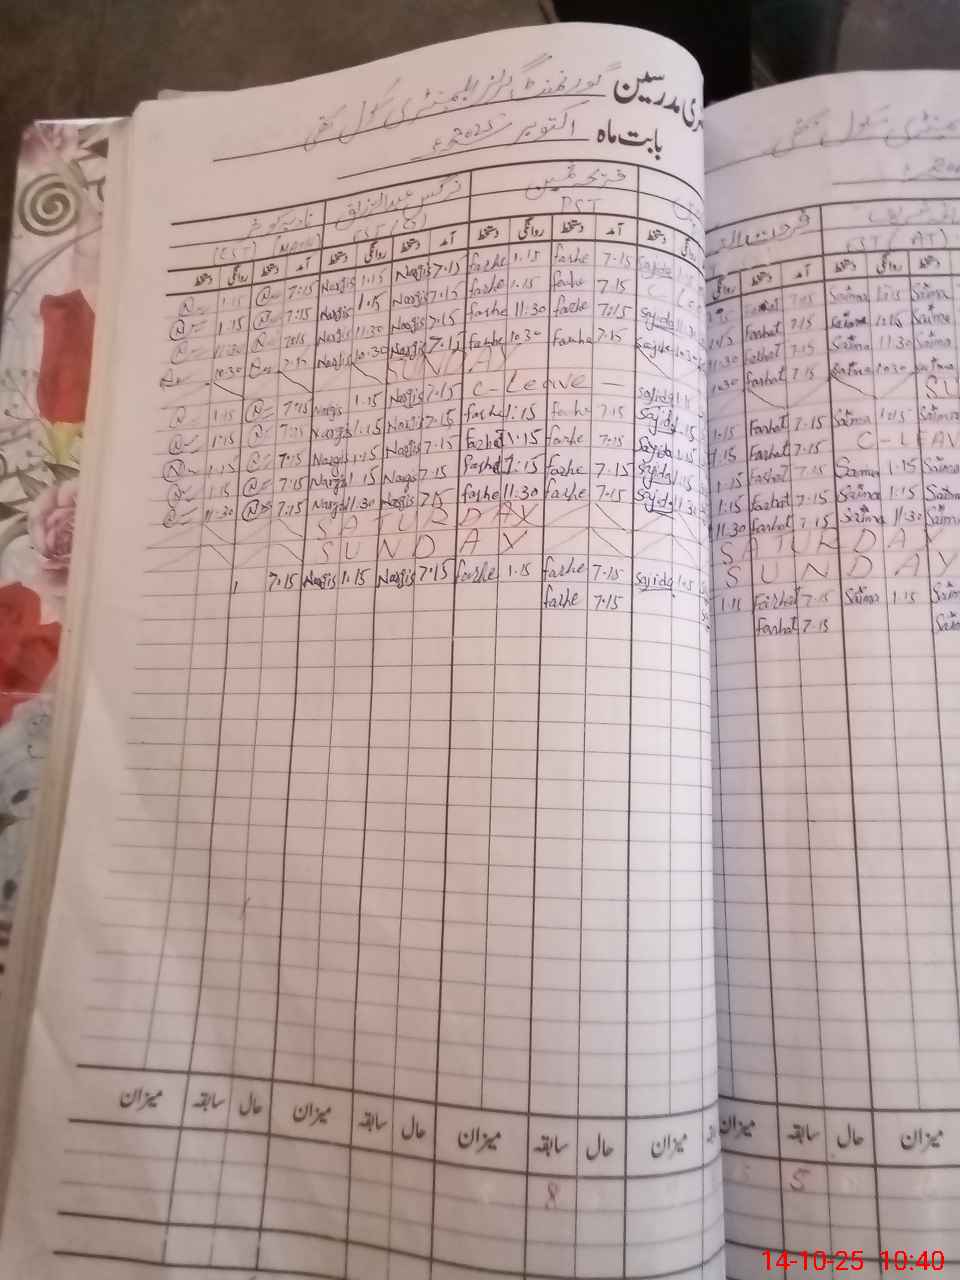 گورنمنٹ گرلز ایلیمنٹری سکول
ری مدرسین
بابت ماہ اکتوبر 2025ء
نرگس عبدالرزاق
PST
(EST)
دستخط روانگی دستخط آمد دستخط روانگی دستخط آمد دستخط روانگی دستخط آمد دستخط روانگی
1:15 7:15 Nargis 1:15 Nargis 7:15 farhe 1:15 farhe 7:15 Sajida
1:15 7:15 Nargis 1:15 Nargis 7:15 farhe 1:15 farhe 7:15 C-Lea
11:30 7:15 Nargis 11:30 Nargis 7:15 farhe 11:30 farhe 7:15 Sajida 11:30
10:30 7:15 Nargis 10:30 Nargis 7:15 farhe 10:30 farhe 7:15 Sajida 10:30
SUNDAY
1:15 7:15 Nargis 1:15 Nargis 7:15 C-Leave — Sajida 1:15
1:15 7:15 Nargis 1:15 Nargis 7:15 farhe 1:15 farhe 7:15 Sajida 1:15
1:15 7:15 Nargis 1:15 Nargis 7:15 farhe 1:15 farhe 7:15 Sajida 1:15
1:15 7:15 Nargis 1:15 Nargis 7:15 farhe 1:15 farhe 7:15 Sajida 1:15
11:30 7:15 Nargis 11:30 Nargis 7:15 farhe 11:30 farhe 7:15 Sajida 11:30
SATURDAY
SUNDAY
7:15 Nargis 1:15 Nargis 7:15 farhe 1:15 farhe 7:15 Sajida 1:15
farhe 7:15
میزان سابقہ حال میزان سابقہ حال میزان سابقہ حال میزان
8
EST (AT)
آمد دستخط روانگی دستخط
7:15 Saima 1:15 Saima
Farhat 7:15 Saima 1:15 Saima
11:30 Farhat 7:15 Saima 11:30 Saima
10:30 Farhat 7:15 Saima 10:30 Saima
SU
1:15 Farhat 7:15 Saima 1:15 Saima
1:15 Farhat 7:15 C-LEAV
1:15 Farhat 7:15 Saima 1:15 Saima
1:15 Farhat 7:15 Saima 1:15 Saima
11:30 Farhat 7:15 Saima 11:30 Saima
SATURDAY
SUNDAY
1:15 Farhat 7:15 Saima 1:15 Saim
Farhat 7:15 Saim
میزان سابقہ حال میزان
5
14-10-25 10:40